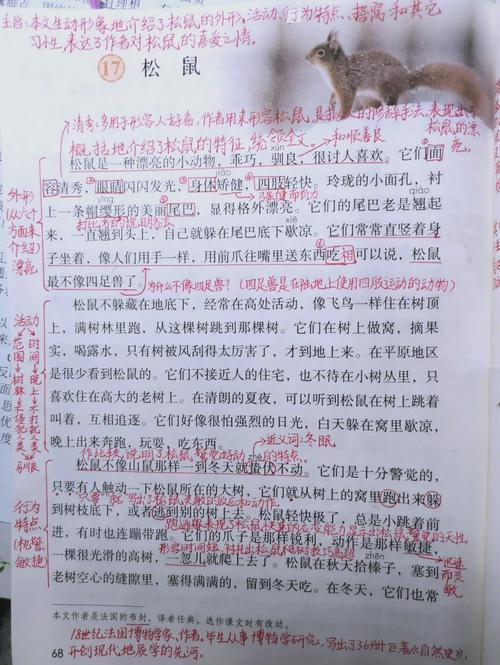 主旨：本文生动形象地介绍了松鼠的外形、活动、行为特点、搭窝和其它
习性，表达了作者对松鼠的喜爱之情。
17 松鼠
清秀：多用于形容人好看，作者用来形容松鼠，是拟人的修辞手法，表现出了松鼠的漂亮。
概括地介绍了松鼠的特征，统领全文。
和顺善良
xùn
松鼠是一种漂亮的小动物，乖巧，驯良，很讨人喜欢。它们①面
容清秀，②眼睛闪闪发光，③身体矫健，④四肢轻快。玲珑的小面孔，衬
jiǎo
强健而有力
yīng
上一条帽缨形的美丽⑤尾巴，显得格外漂亮。它们的尾巴老是翘起
qiào
来，一直翘到头上，自己就躲在尾巴底下歇凉。它们常常直竖着身
xiē
子坐着，像人们用手一样，用前爪往嘴里送东西⑥吃相可以说，松鼠
最不像四足兽了。
为什么不像四足兽？（四足兽是在陆地上使用四肢运动的动物）
外形
（从六个方面来介绍）
漂亮
松鼠不躲藏在地底下，经常在高处活动，像飞鸟一样住在树顶
上，满树林里跑，从这棵树跳到那棵树。它们在树上做窝，摘果
实，喝露水，只有树被风刮得太厉害了，才到地上来。在平原地区
是很少看到松鼠的。它们不接近人的住宅，也不待在小树丛里，只
喜欢住在高大的老树上。在清朗的夏夜，可以听到松鼠在树上跳着
叫着，互相追逐。它们好像很怕强烈的日光，白天躲在窝里歇凉，
晚上出来奔跑，玩耍，吃东西。
活动
范围
时间
驯良
近义词：冬眠
zhé
松鼠不像山鼠那样一到冬天就蛰伏不动。它们是十分警觉的，
只要有人触动一下松鼠所在的大树，它们就从树上的窝里跑出来躲
到树枝底下，或者逃到别的树上去。松鼠轻快极了，总是小跳着前
进，有时也连蹦带跑。它们的爪子是那样锐利，动作是那样敏捷，
一棵很光滑的高树，一忽儿就爬上去了。松鼠在秋天拾榛子，塞到
老树空心的缝隙里，塞得满满的，留到冬天吃。在冬天，它们也常
行为特点
（机警、敏捷）
迅速而灵敏
本文作者是法国的布封，译者任典，选作课文时有改动。
18世纪法国博物学家、作者，毕生从事博物学研究，写出了36册巨著《自然史》，
开创现代地质学的先河。
68